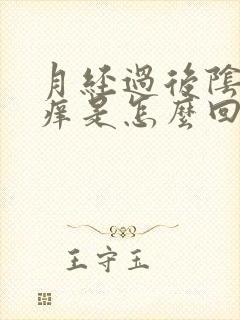 月經過後陰
痒是怎麼回
王守玉